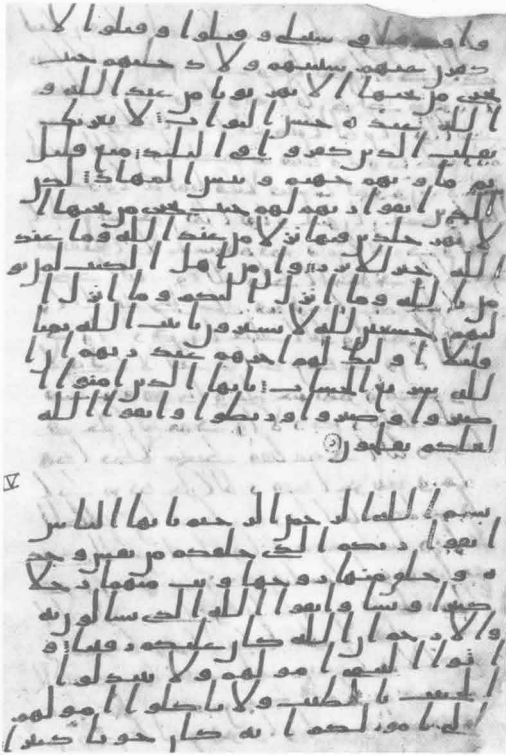 واوذوا في سبيلي وقتلوا وقتلوا لا
كفرن عنهم سيتهم ولادخلنهم جنت
تجري من تحتها الانهر ثوابا من عند الله و
الله عنده حسن الثواب لا يغرنك
تقلب الذين كفروا في البلد متع قليل
ثم ماويهم جهنم وبيس المهاد لكن
الذين اتقوا ربهم لهم جنت تجري من تحتها ا
لانهر خلدين فيها نزلا من عند الله وما عند
الله خير للابرار وان من اهل الكتب لمن يو
من بالله وما انزل اليكم وما انزل ا
ليهم خشعين لله لا يشترون بايت الله ثمنا
قليلا اوليك لهم اجرهم عند ربهم ان ا
لله سريع الحساب يايها الذين امنوا ا
صبروا وصبروا وربطوا واتقوا الله
لعلكم تفلحون
V
بسم الله الرحمن الرحيم يايها الناس
اتقوا ربكم الذي خلقكم من نفس وحد
ه وخلق منها زوجها وبث منهما رجلا
كثيرا ونسا واتقوا الله الذي تسالون به
والارحام ان الله كان عليكم رقيبا و
اتوا اليتمى امولهم ولا تبدلوا
الخبيث بالطيب ولا تاكلوا امولهم
الى امولكم انه كان حوبا كبيرا